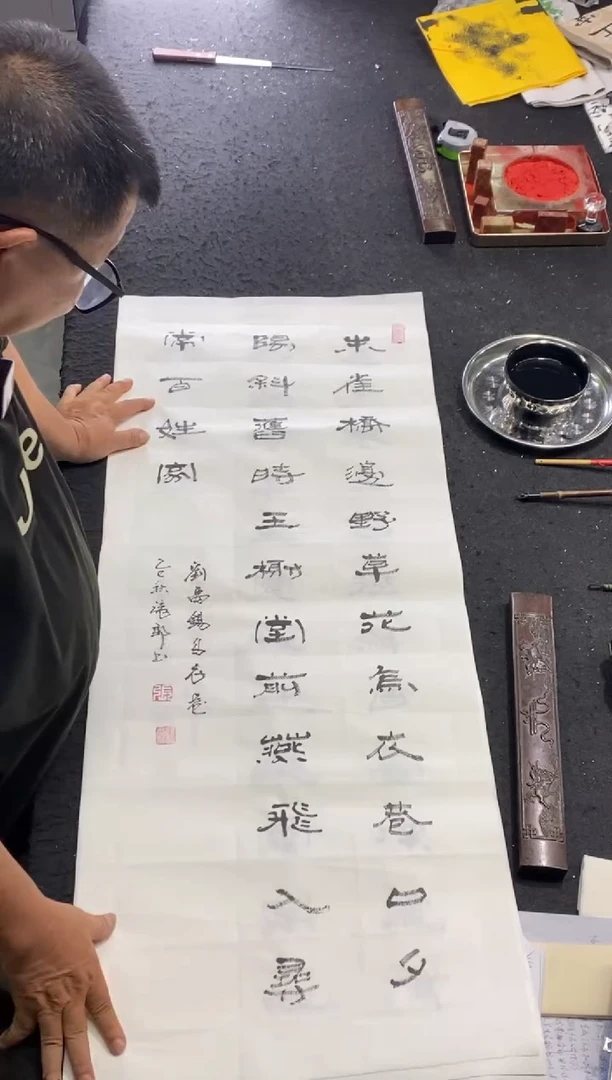 朱雀橋邊野草花烏衣巷口夕
陽斜舊時王榭堂前燕飛入尋
常百姓家
劉禹錫烏衣巷
乙巳秋張